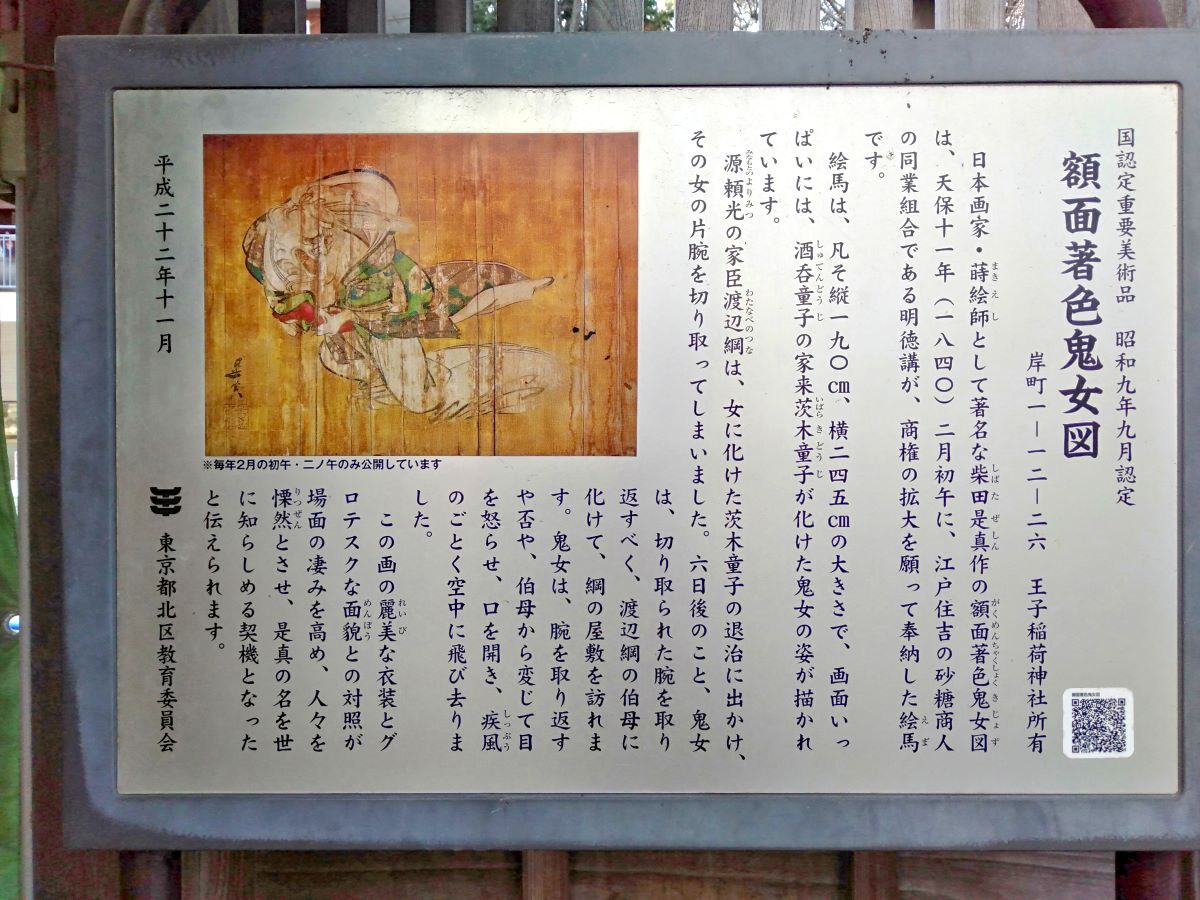 国認定重要美術品　昭和九年九月認定
額面著色鬼女図
岸町一―一二―二六　王子稲荷神社所有
日本画家・蒔絵師として著名な柴田是真作の額面著色鬼女図
は、天保十一年（一八四〇）二月初午に、江戸住吉の砂糖商人
の同業組合である明徳講が、商権の拡大を願って奉納した絵馬
です。
絵馬は、凡そ縦一九〇㎝、横二四五㎝の大きさで、画面いっ
ぱいには、酒呑童子の家来茨木童子が化けた鬼女の姿が描かれ
ています。
源頼光の家臣渡辺綱は、女に化けた茨木童子の退治に出かけ、
その女の片腕を切り取ってしまいました。六日後のこと、鬼女
は、切り取られた腕を取り
返すべく、渡辺綱の伯母に
化けて、綱の屋敷を訪れま
す。鬼女は、腕を取り返す
や否や、伯母から変じて目
を怒らせ、口を開き、疾風
のごとく空中に飛び去りま
した。
この画の麗美な衣装とグ
ロテスクな面貌との対照が
場面の凄みを高め、人々を
慄然とさせ、是真の名を世
に知らしめる契機となった
と伝えられます。
平成二十二年十一月
東京都北区教育委員会
※毎年2月の初午・二ノ午のみ公開しています